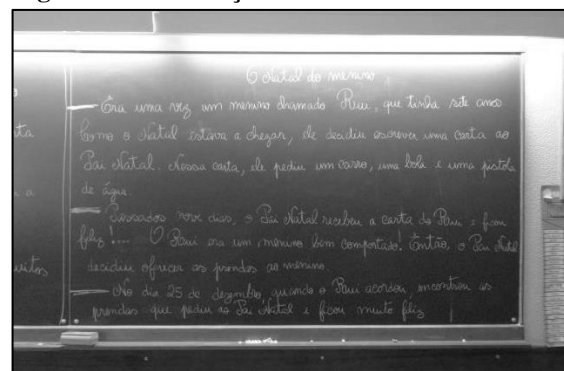 O Natal do menino
ta
Era uma vez um menino chamado Rui, que tinha sete anos
Como o Natal estava a chegar, ele decidiu escrever uma carta ao
Pai Natal. Nessa carta, ele pediu um carro, uma bola e uma pistola
a
de água.
Passados nove dias, o Pai Natal recebeu a carta do Rui e ficou
feliz!... O Rui era um menino bem comportado! Então, o Pai Natal
decidiu oferecer as prendas ao menino.
No dia 25 de dezembro, quando o Rui acordou, encontrou as
prendas que pediu ao Pai Natal e ficou muito feliz